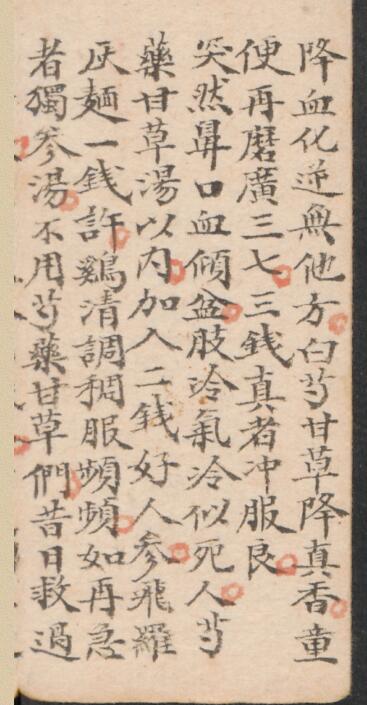 降血化逆無他方白芍甘草降真香童
便再磨廣三七三錢真者冲服良
突然鼻口血傾盆肢冷氣冷似死人芍
藥甘草湯以内加入二錢好人參飛羅
灰麵一錢許鷄清調稠服頻頻如再急
者獨參湯不用芍藥甘草們昔日救過